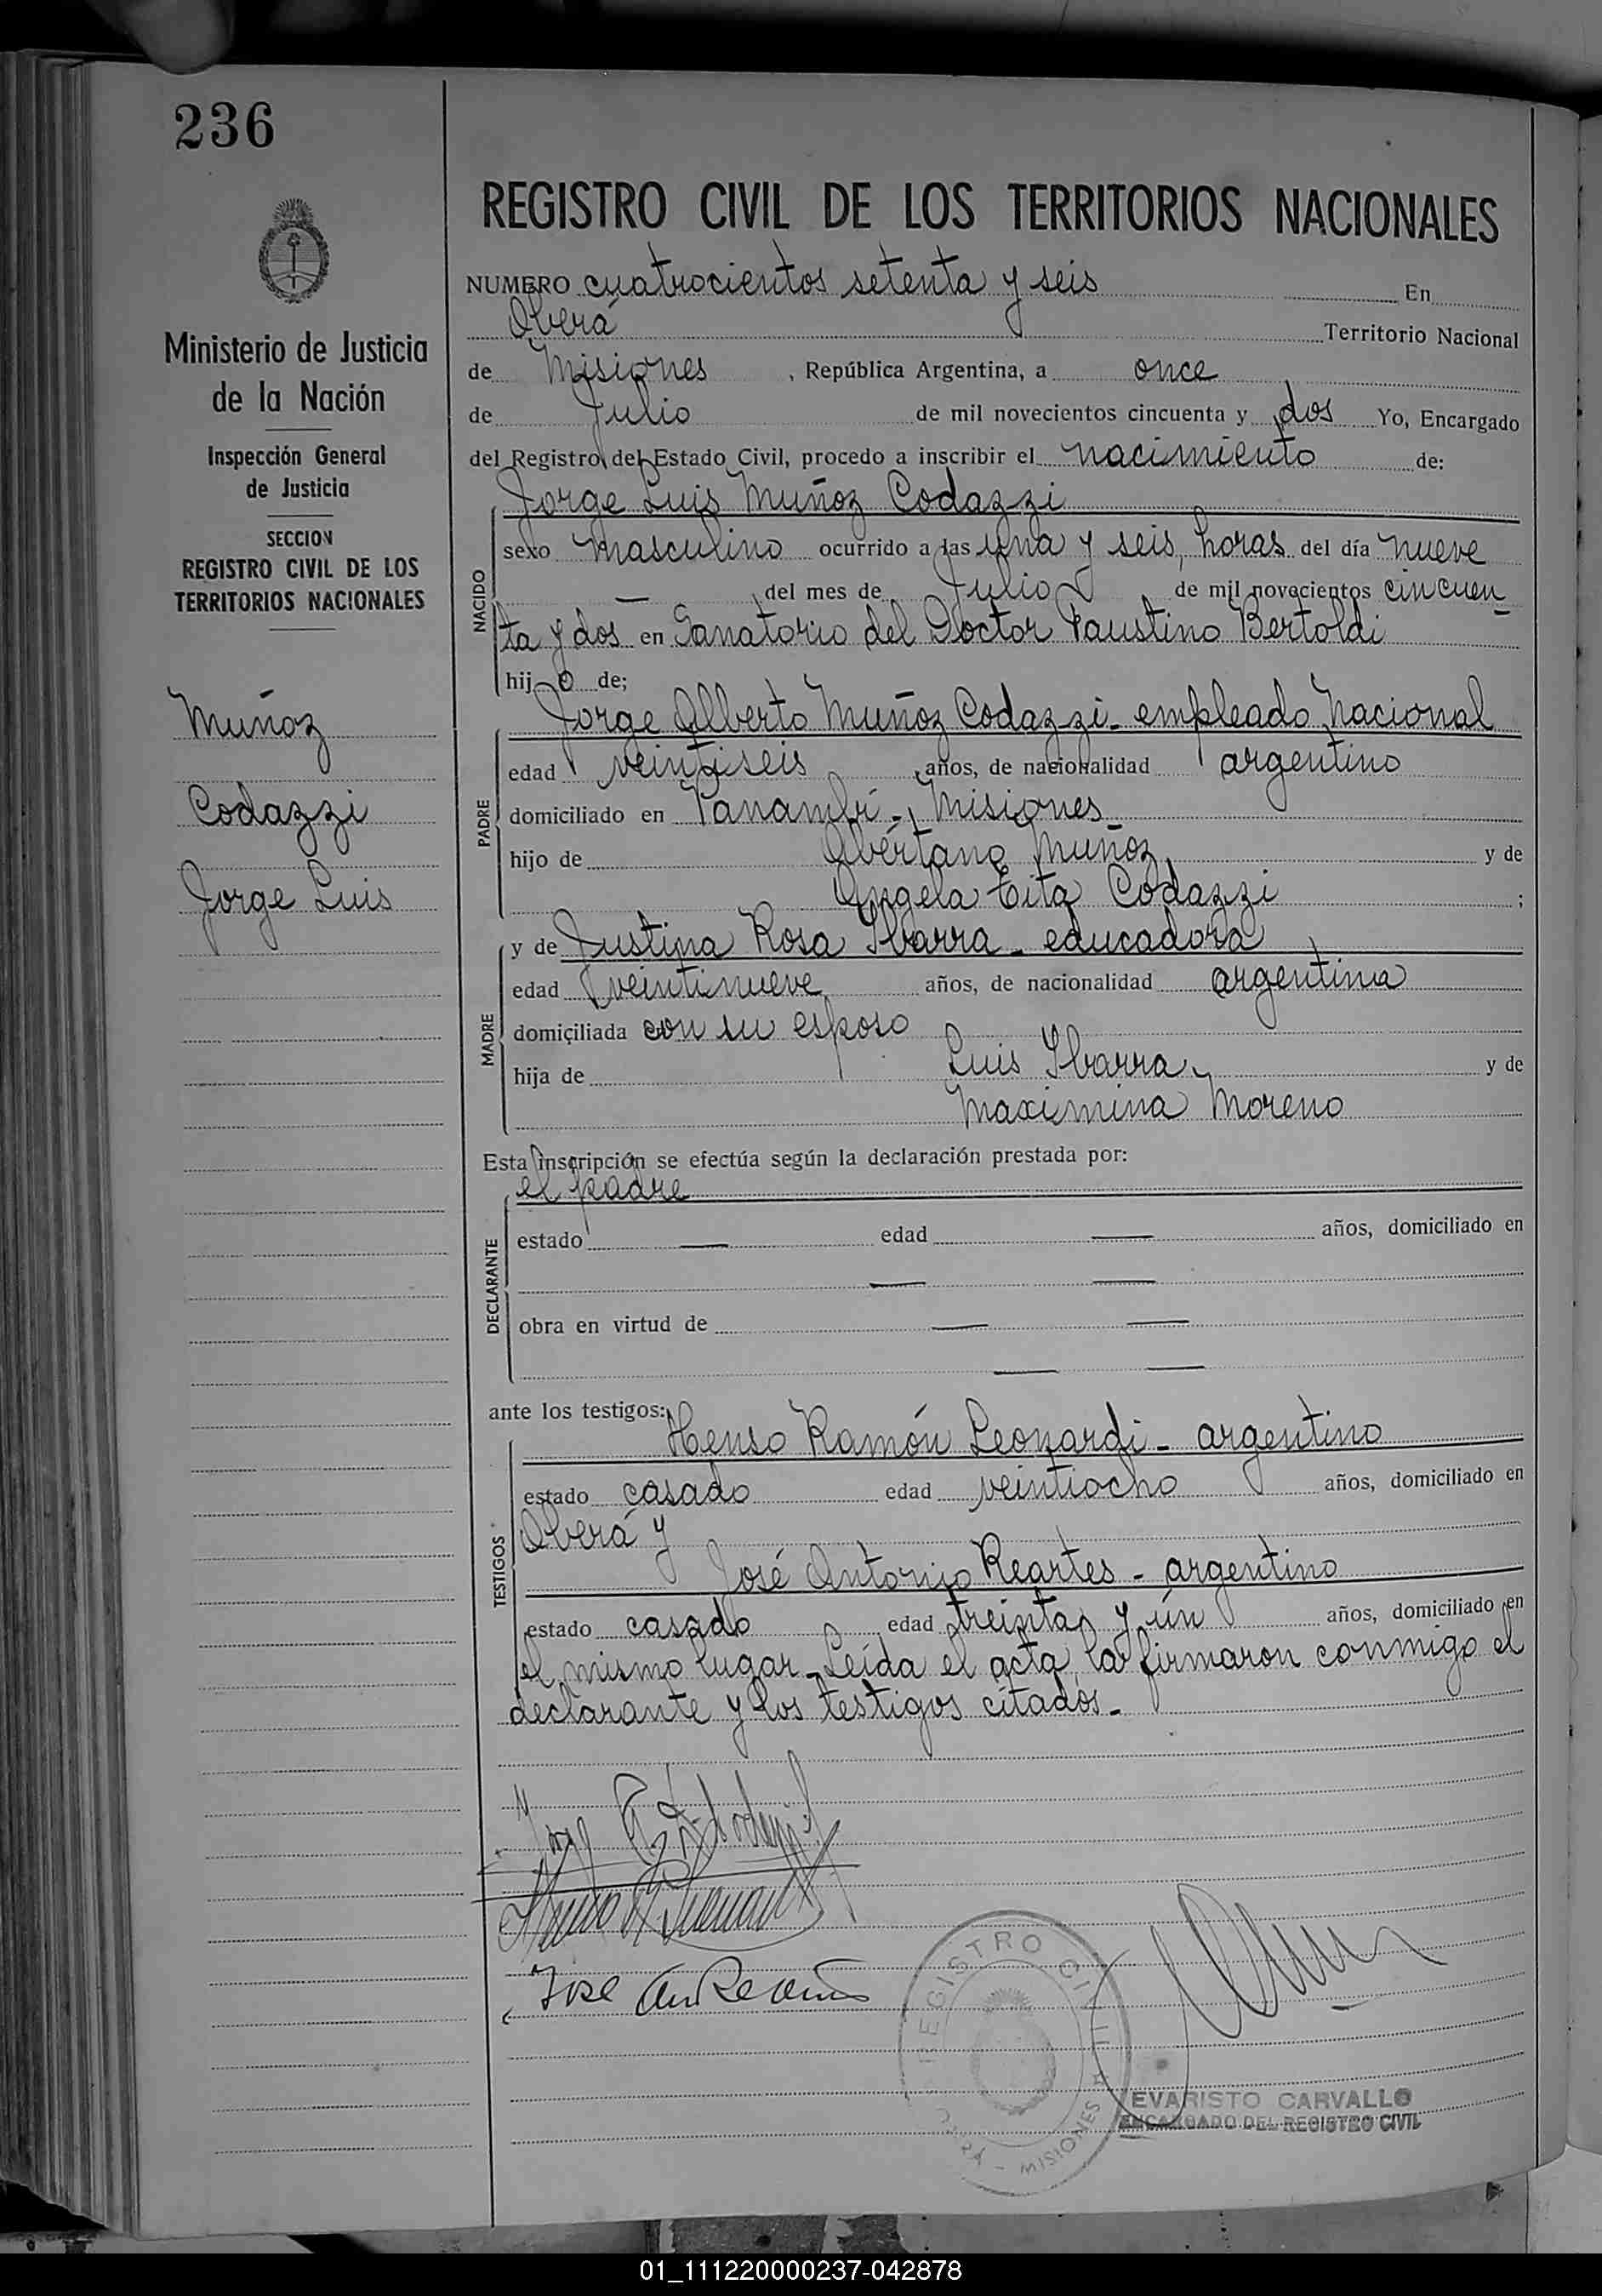 236
Ministerio de Justicia
de la Nación
Inspección General
de Justicia
SECCION
REGISTRO CIVIL DE LOS
TERRITORIOS NACIONALES
Muñoz
Codazzi
Jorge Luis
REGISTRO CIVIL DE LOS TERRITORIOS NACIONALES
NUMERO cuatrocientos setenta y seis En
Oberá Territorio Nacional
de Misiones, República Argentina, a once
de Julio de mil novecientos cincuenta y dos Yo, Encargado
del Registro del Estado Civil, procedo a inscribir el nacimiento de:
Jorge Luis Muñoz Codazzi
NACIDO
sexo masculino ocurrido a las una y seis, horas del día nueve
— del mes de Julio de mil novecientos cincuen
ta y dos en Sanatorio del Doctor Faustino Bertoldi
hijo de;
Jorge Alberto Muñoz Codazzi - empleado Nacional
PADRE
edad veintiseis años, de nacionalidad argentino
domiciliado en Panambí - Misiones
hijo de Abértano Muñoz y de
Angela Tita Codazzi ;
y de Justina Rosa Ibarra - educadora
MADRE
edad veintinueve años, de nacionalidad argentina
domiciliada con su esposo
hija de Luis Ibarra y de
Maximina Moreno
Esta inscripción se efectúa según la declaración prestada por:
el padre
DECLARANTE
estado — edad — años, domiciliado en
— —
obra en virtud de — —
— —
ante los testigos:
Henso Ramón Leonardi - argentino
TESTIGOS
estado casado edad veintiocho años, domiciliado en
Oberá y
José Antonio Reartes - argentino
estado casado edad treinta y ún años, domiciliado en
el mismo lugar - Leída el acta la firmaron conmigo el
declarante y los testigos citados -
Jose
REGISTRO CIVIL
OBERÁ - MISIONES
EVARISTO CARVALLO
ENCARGADO DEL REGISTRO CIVIL
01_111220000237-042878